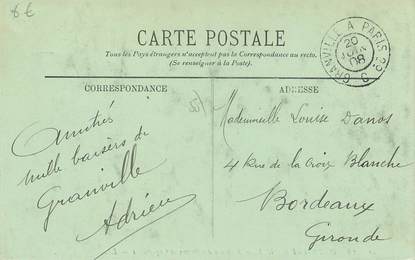 8 €
CARTE POSTALE
Tous les Pays étrangers n'acceptent pas la Correspondance au recto.
(Se renseigner à la Poste).
GRANVILLE A PARIS 2º C
20
JUIN
08
CORRESPONDANCE
Amitiés
mille baisers de
Granville
Adrien
ADRESSE
Mademoiselle Louise Danos
4 Rue de la Croix Blanche
Bordeaux
Gironde